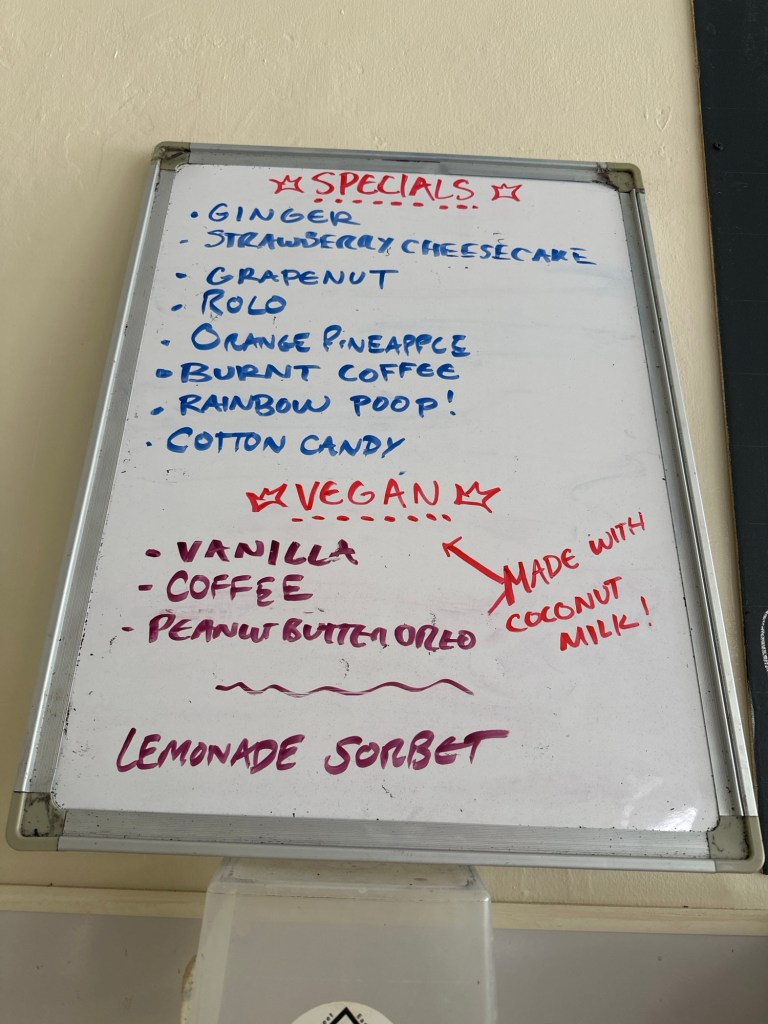 SPECIALS
• GINGER
- STRAWBERRY CHEESECAKE
- GRAPENUT
• ROLO
• ORANGE PINEAPPLE
• BURNT COFFEE
• RAINBOW POOP!
• COTTON CANDY
VEGAN
- VANILLA
- COFFEE
- PEANUT BUTTER OREO
MADE WITH
COCONUT
MILK!
LEMONADE SORBET